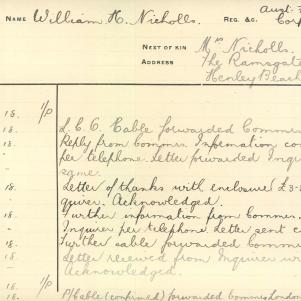 NAME William H. Nicholls. REG. &C. Aust.
Corp
NEXT OF KIN Mrs Nicholls.
ADDRESS The Ramsgate
Henley Beach
18. 1/P
I.C.O. Cable forwarded Commis
18. Reply from Commis. Information co
per telephone. Letter forwarded Inqu
same.
18. Letter of thanks with enclosure £3-3-
quirer. Acknowledged.
18. Further information from Commis.
Inquirer per telephone. Letter sent c
18. Further cable forwarded Commi
18. Letter received from Inquirer
Acknowledged.
18. 1/P
18. Cable (confirmed) forwarded Commis London